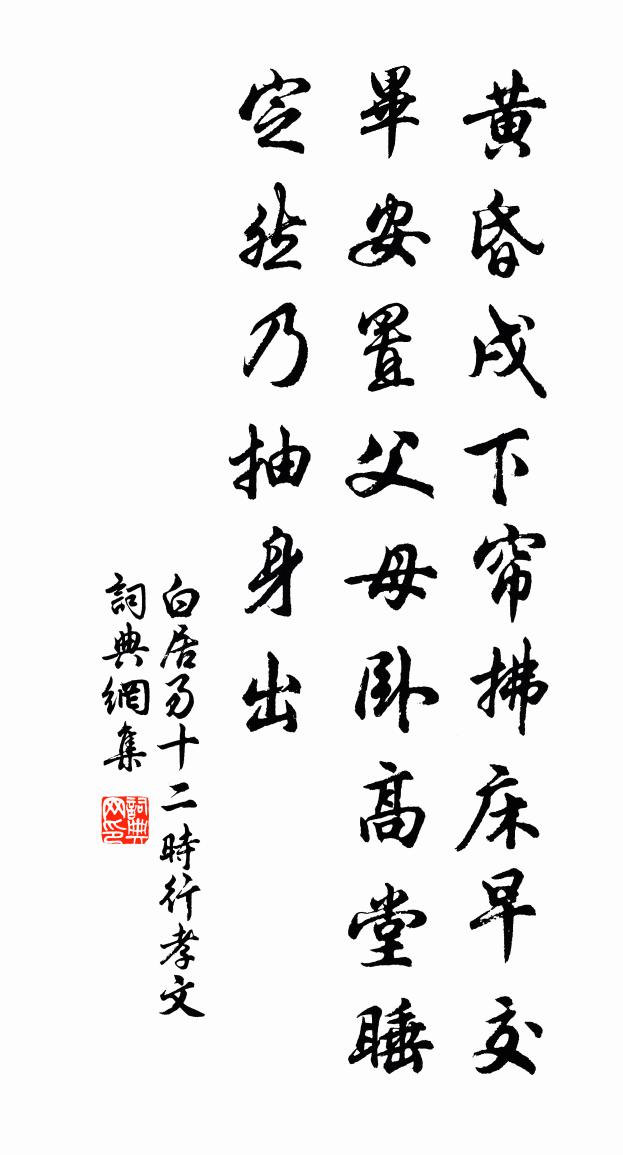 黄昏戌下帘拂床早交
畢安置父母卧高堂睡
定然乃抽身出
白居易十二時行孝文
詞典網集
詞典网印